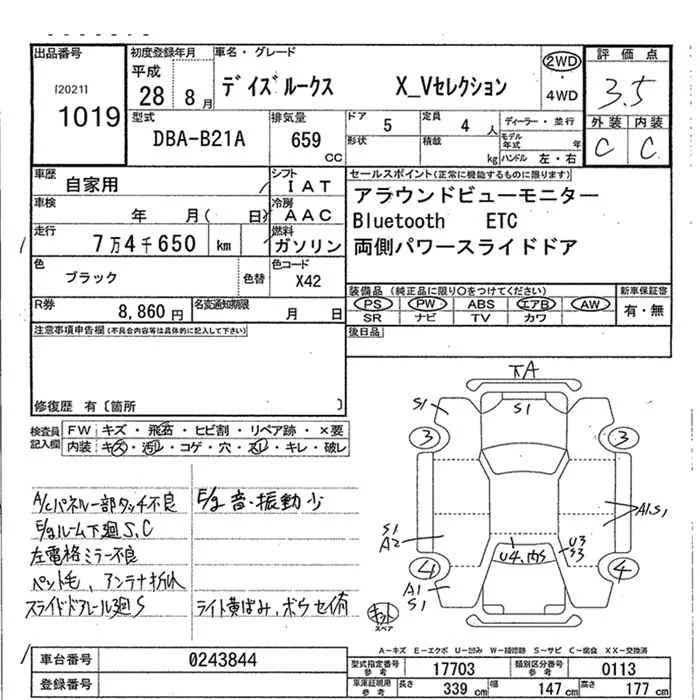 出品番号
[2021]
1019
初度登録年月
平成
28 8月
車名・グレード
デイズルークス X_Vセレクション
2WD
・
4WD
評価点
3.5
外装 内装
C C
型式
DBA-B21A
排気量
659
CC
ドア 5
定員 4 人
形状
積載 kg
ディーラー・並行
モデル年式 年
ハンドル 左・右
車歴
自家用
シフト
IAT
車検
年 月( 日)
冷房
AAC
走行
7万4千650 km
燃料
ガソリン
色
ブラック
色替
色コード
X42
R券
8,860円
名変通知期限
月 日
セールスポイント(正常に機能するものに限ります)
アラウンドビューモニター
Bluetooth ETC
両側パワースライドドア
装備品 (純正品に限り○をつけてください)
PS PW ABS エアB AW
SR ナビ TV カワ
新車保証書
有・無
後日品
注意事項申告欄(不具合内容等は具体的に記入して下さい)
修復歴 有〔箇所 〕
検査員記入欄
FW キズ・飛石・ヒビ割・リペア跡・×要
内装 キズ・汚レ・コゲ・穴・スレ・キレ・破レ
A/Cパネル一部タッチ不良
E/gルーム下廻S,C
左電格ミラー不良
ペット毛、アンテナ折れ
スライドドアレール廻S
E/g音・振動少
ライト黄ばみ、ボウセイ有
下A
S1
S1
3
3
A1.S1
S1
A2
U4.内S
U3
S3
4
4
A1
S1
キット
スペア
A-キズ E-エクボ U-凹み W-補修跡 S-サビ C-腐食 XX-交換済
車台番号
0243844
登録番号
型式指定番号
参考
17703
類別区分番号
参考
0113
車庫証明用
参考
長さ 339 cm
幅 147 cm
高さ 177 cm